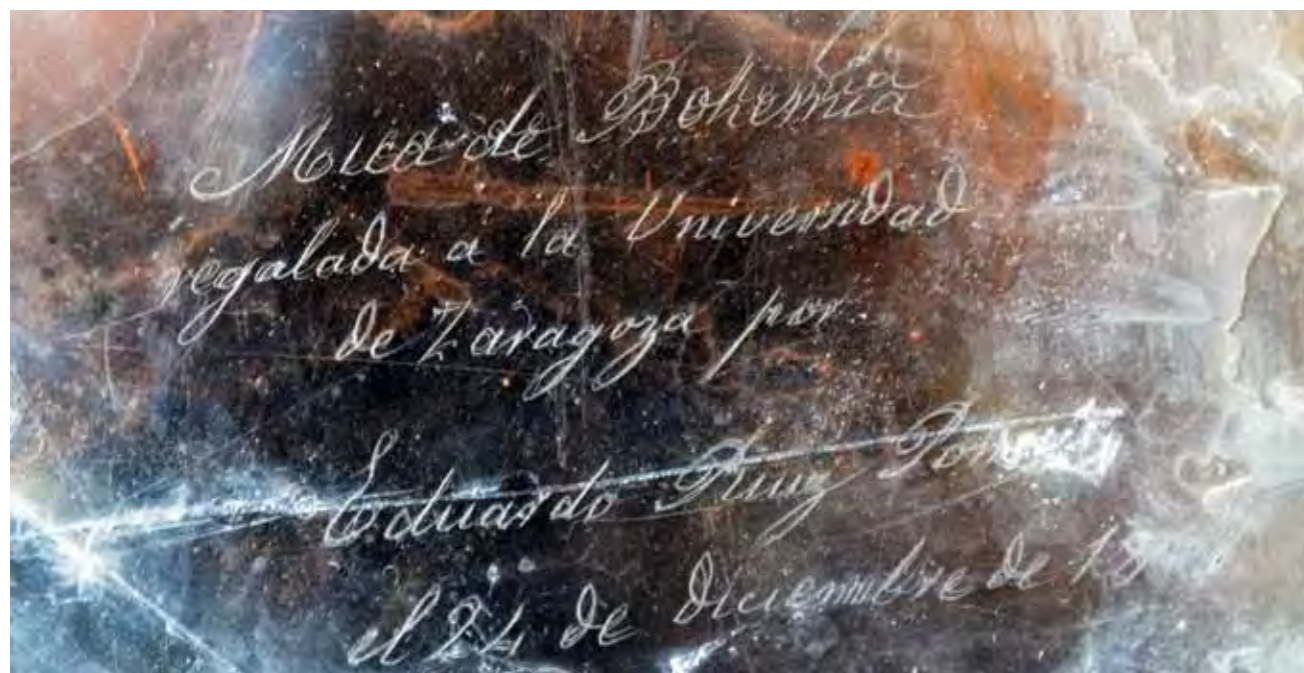 Mica de Bohemia
regalada a la Universidad
de Zaragoza por
Eduardo Ruiz
el 24 de Diciembre de